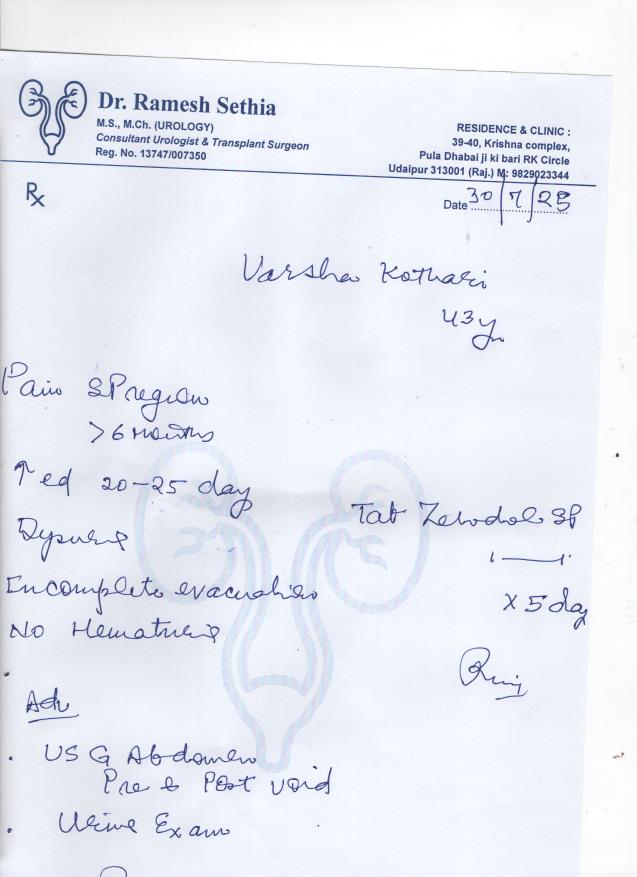 Dr. Ramesh Sethia
M.S., M.Ch. (UROLOGY)
Consultant Urologist & Transplant Surgeon
Reg. No. 13747/007350
RESIDENCE & CLINIC :
39-40, Krishna complex,
Pula Dhabai ji ki bari RK Circle
Udaipur 313001 (Raj.) M: 9829023344
Rx
Date 30/7/25
Varsha Kothari
43y
Pain SP region
>6 months
↑ed 20-25 day
Dysuria
Tab Zerodol SP
1——1
x 5 day
Incomplete evacuation
No Hematuria
Adv
. USG Abdomen
Pre & Post void
. Urine Exam